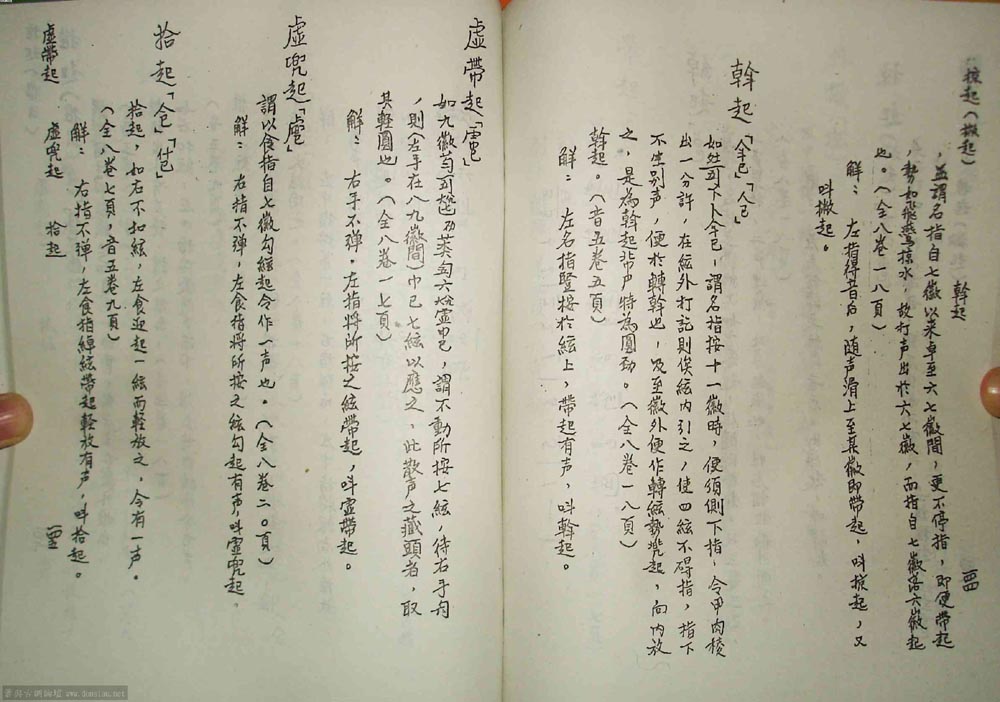 掠起（撇起） 斡起
，並謂名指自七徽以來卓至六七徽間，更不停指，即便帶起
，勢如飛鷰掠水，故打声出於六七徽，而指自七徽落六徽起
也。（全八卷一八頁）
解： 左指得音后，随声滑上至某徽即帶起，叫掠起，又
叫撇起。
斡起
謂名指按十一徽時，便須側下指，令甲肉稜
出一分許，在絃外打訖則俟絃内引之，使四絃不碍指，指下
不生别声，便於轉斡也，及至徽外便作轉絃勢兜起，向内放
之，是為斡起，声特為圓勁。（全八卷一八頁）
斡起。（音五卷五頁）
解： 左名指豎按於絃上，帶起有声，叫斡起。
虚帶起
謂不動所按七絃，待右手勾
，則（左手在八九徽間） 七絃以應之，此散声之藏頭者，取
其輕圓也。（全八卷一七頁）
解： 右手不弹，左指將所按之絃帶起，叫虚帶起。
虚兜起
謂以食指自七徽勾絃起令作一声也。（全八卷二〇頁）
解： 右指不弹，左食指將所按之絃勾起有声叫虚兜起。
拾起
拾起，如右不扣絃，左食迎起一絃而輕放之，令有一声。
（全八卷七頁，音五卷九頁）
解： 右指不弹，左食指綽絃帶起輕放有声，叫拾起。
虚帶起 虚兜起 拾起
www.donsian.net